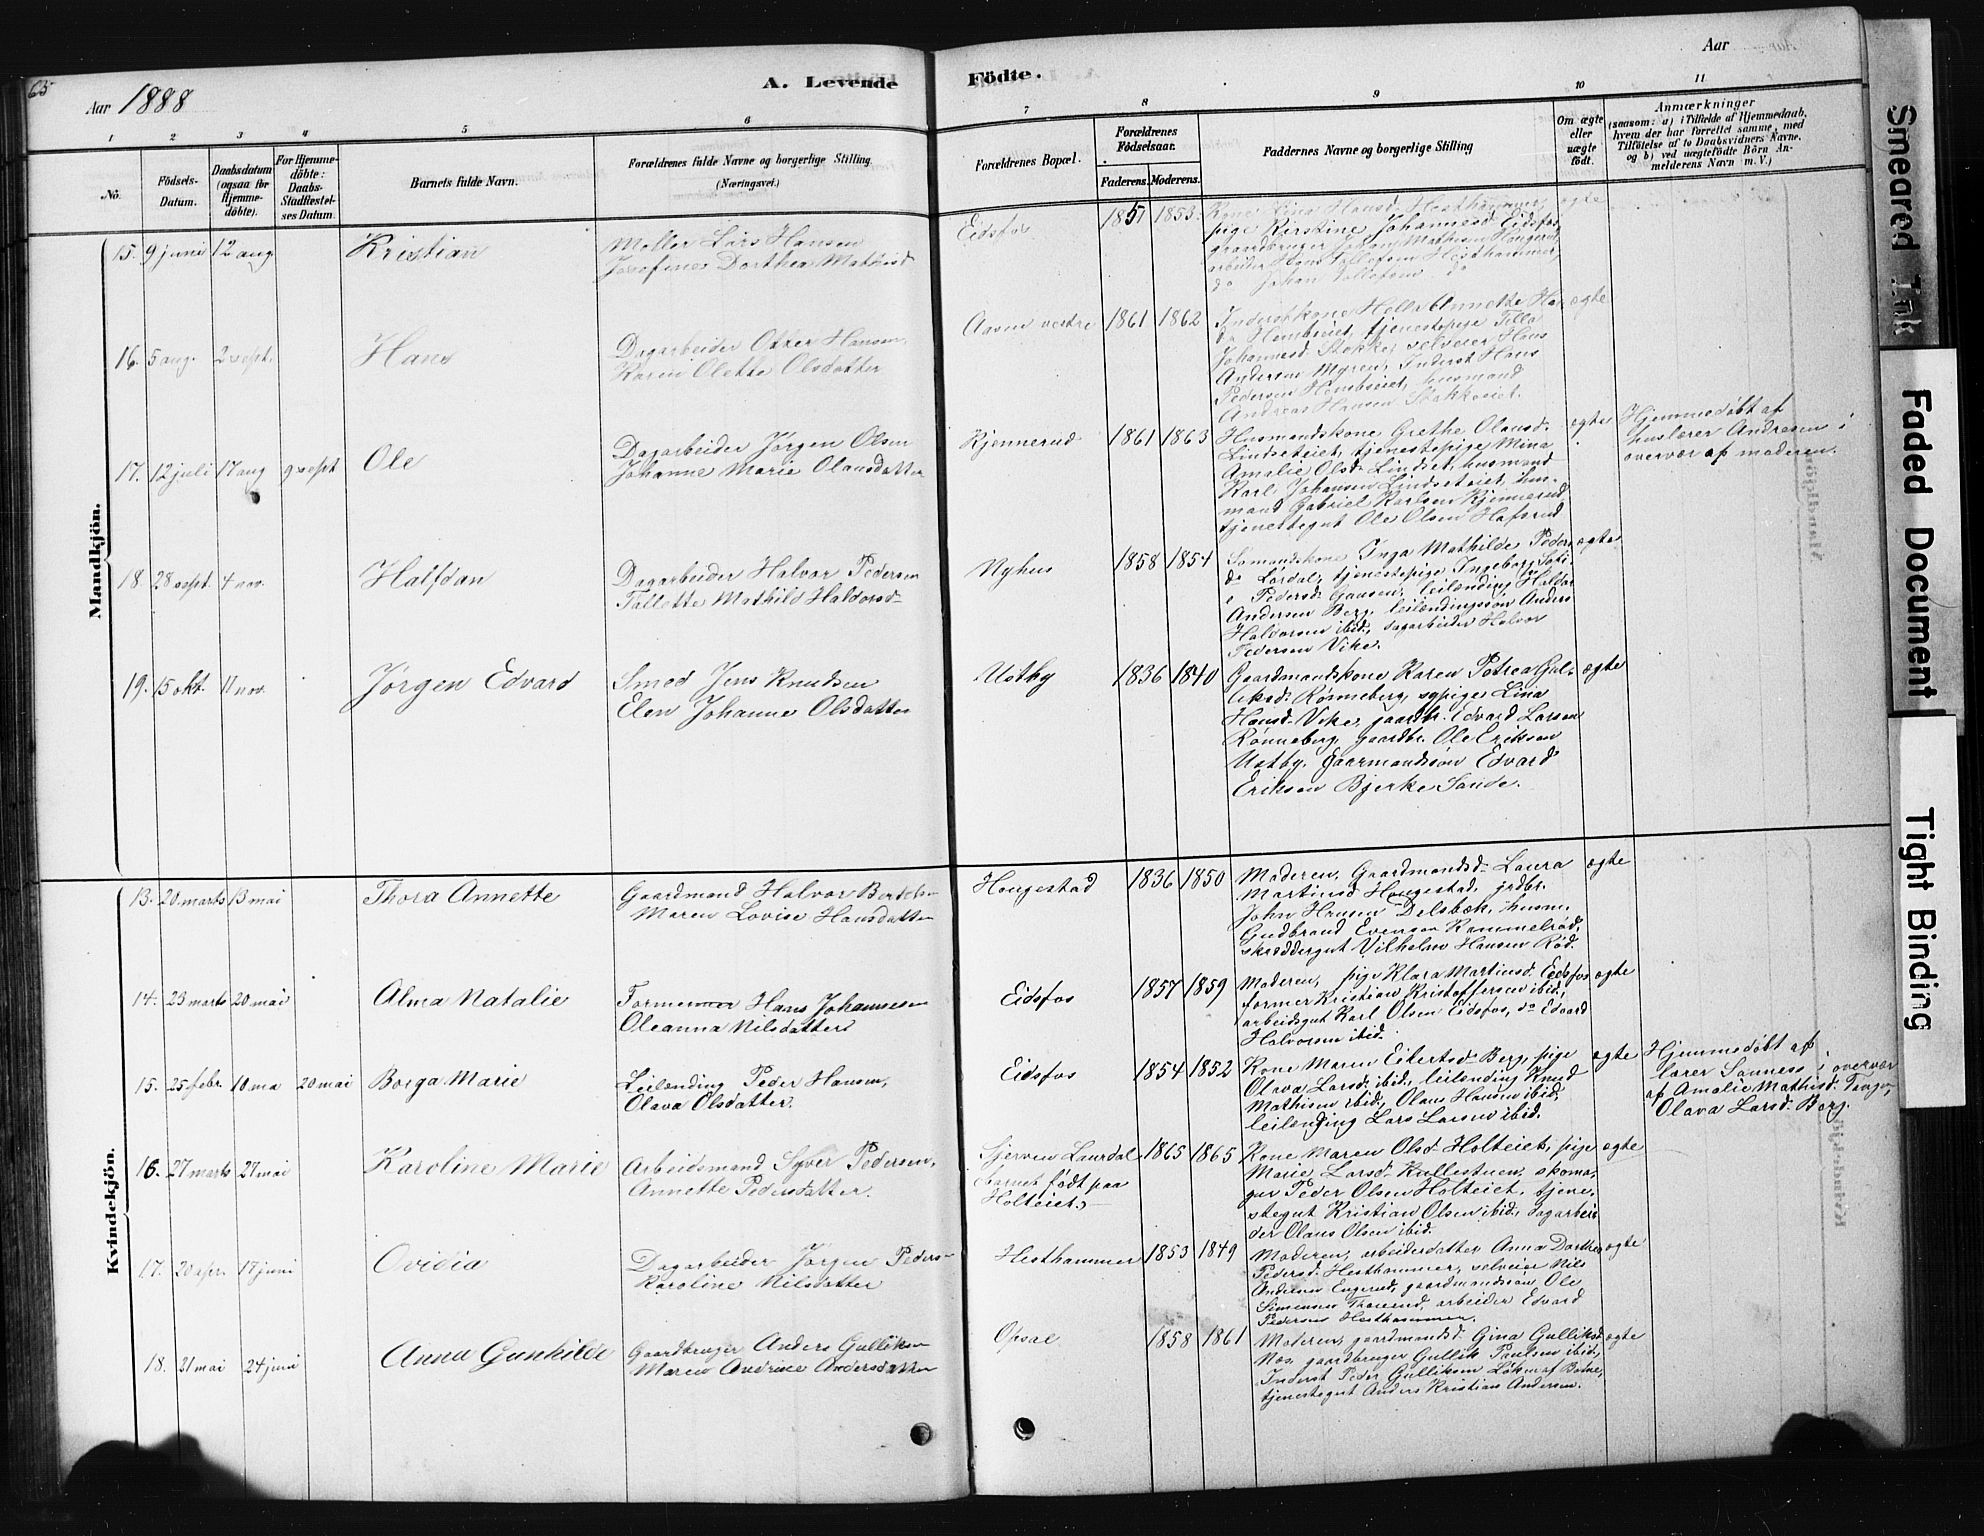 65
Aar 1888
A. Levende
Fødte.
Aar
1 2 3 4 5 6 7 8 9 10 11
No.
Fødsels-
Datum.
Daabsdatum
(ogsaa for
Hjemme-
døbte).
For Hjemme-
døbte:
Daabs-
Stadfæstel-
ses Datum.
Barnets fulde Navn.
Forældrenes fulde Navne og borgerlige Stilling
(Næringsvei.)
Forældrenes Bopæl.
Forældrenes
Fødselsaar.
Faderens. Moderens.
Faddernes Navne og borgerlige Stilling
Om ægte
eller
uægte
født.
Anmærkninger
(saasom: a) i Tilfælde af Hjemmedaab,
hvem der har forrettet samme, med
Tilføielse af to Daabsvidners Navne.
og b) ved uægtefødte Børn An-
melderens Navn m. V.)
Mandkjön.
15. 9 juni 12 aug
Kristian
Møller Lars Hansen
Josefine Dorthea Mathisd
Eidsfos
1851 1853
Kone Lina Hansd. Hesthammer,
pige Kirstine Johannesd. Eidsfos,
gaardbruger Johan Mathisen
arbeider Hans Tollefsen Hesthammer,
do Johan Tollefsen do
ægte
16. 5 aug. 2 sept.
Hans
Dagarbeider Otter Hansen,
Karen Olette Olsdatter
Aasen vestre
1861 1862
Inderstkone Helle Annette Han
do Hembseiet, tjenestepige Tilla
Johannesd. Stokke, selveier Hans
Andersen Myren, Inderst Hans
Pedersen Hembseiet, husmand
Andreas Hansen Stokkeeiet.
ægte
17. 12 juli 17 aug 9 sept
Ole
Dagarbeider Jørgen Olsen
Johanne Marie Olausdatter
Kjennerud
1861 1863
Husmandskone Grethe Olausd.
Lindseteiet, tjenestepige Mina
Amalie Olsd. Lindset, husmand
Karl Johansen Lindseteiet, hus-
mand Gabriel Karlsen Kjennerud
tjenestegut Ole Olsen Hafsrud
ægte
Hjemmedøbt af
huslærer Andresen i
overvær af moderen.
18. 28 sept. 4 nov.
Halfdan
Dagarbeider Halvor Pedersen
Tallette Mathild Haldorsd
Nyhus
1858 1854
Sømandskone Inga Mathilde Peders
do Lørdal, tjenestepige Ingeborg Sofi-
e Pedersd. Gausen, leilending Haldor
Andersen Berg, leilendingssøn Anders
Halvorsen ibid., dagarbeider Halvor
Pedersen Vike.
ægte
19. 15 okt. 11 nov.
Jørgen Edvard
Smed Jens Knudsen
Elen Johanne Olsdatter
Ustby
1836 1840
Gaardmandskone Karen Petrea Gul-
liksd. Rønneberg, sypige Lina
Hansd. Vike, gaardbr. Edvard Larsen
Rønneberg, gaardbr. Ole Eriksen
Ustby, Gaarmandssøn Edvard
Eriksen Bjerke Sande.
ægte
Kvindekjön.
13. 20 marts 13 mai
Thora Annette
Gaardmand Halvor Bertels-
Maren Lovise Hansdatter
Hougestad
1836 1850
Moderen, Gaardmandsd. Laura
Martinsd. Hougestad, grdbr.
John Hansen Delsbæk, husm.
Gudbrand Evensen Rammelrød,
skræddergut Vilhelm Hansen Rød.
ægte
14. 23 marts 20 mai
Alma Natalie
Former Hans Johannesen
Oleanna Nilsdatter
Eidsfos
1857 1859
Moderen, pige Klara Martinsd. Eidsfos
former Kristian Kristoffersen ibid.,
arbeidsgut Karl Olsen Eidsfos, do Edvard
Halvorsen ibid.
ægte
15. 25 febr. 10 ma 20 mai
Borga Marie
Leilending Peder Hansen,
Olava Olsdatter.
Eidsfos
1854 1852
Kone Maren Eilertsd. Berg, pige
Olava Larsd. ibid., leilending Knud
Mathisen ibid., Olaus Hansen ibid.,
leilending Lars Larsen ibid.
ægte
Hjemmedøbt af
lærer Sanness i overvær
af Amalie Mathisd.
Olava Larsd. Berg.
16. 27 marts 27 mai
Karoline Marie
Arbeidsmand Syver Pedersen,
Annette Pedersdatter.
Sjerven Laurdal
barnet født paa
Holteiet
1865 1865
Kone Maren Olsd. Holteiet, pige
Marie Larsd. Kullestuen, skoma-
ger Peder Olsen Holteiet, tjene-
stegut Kristian Olsen ibid., dagarbei-
der Olaus Olsen ibid.
ægte
17. 20 apr. 17 juni
Ovidia
Dagarbeider Jørgen Peders-
Karoline Nilsdatter
Hesthammer
1853 1849
Moderen, arbeiderdatter Anna Dorthea
Pedersd. Hesthammer, selveier Nils
Andersen Engerud, gaardmandssøn Ole
Simensen Thorerud, arbeider Edvard
Pedersen Hesthammer.
ægte
18. 21 mai 24 juni
Anna Gunhilde
Gaardbruger Anders Gulliksen
Maren Andrine Andersdatter
Opsal
1858 1861
Moderen, gaardmandsd. Gina Gulliksd
Næs, gaardbruger Gullik Paulsen ibid.,
Inderst Peder Gulliksen Løken af Botne,
tjenestegut Anders Kristian Andersen.
ægte
Smeared Ink
Faded Document
Tight Binding